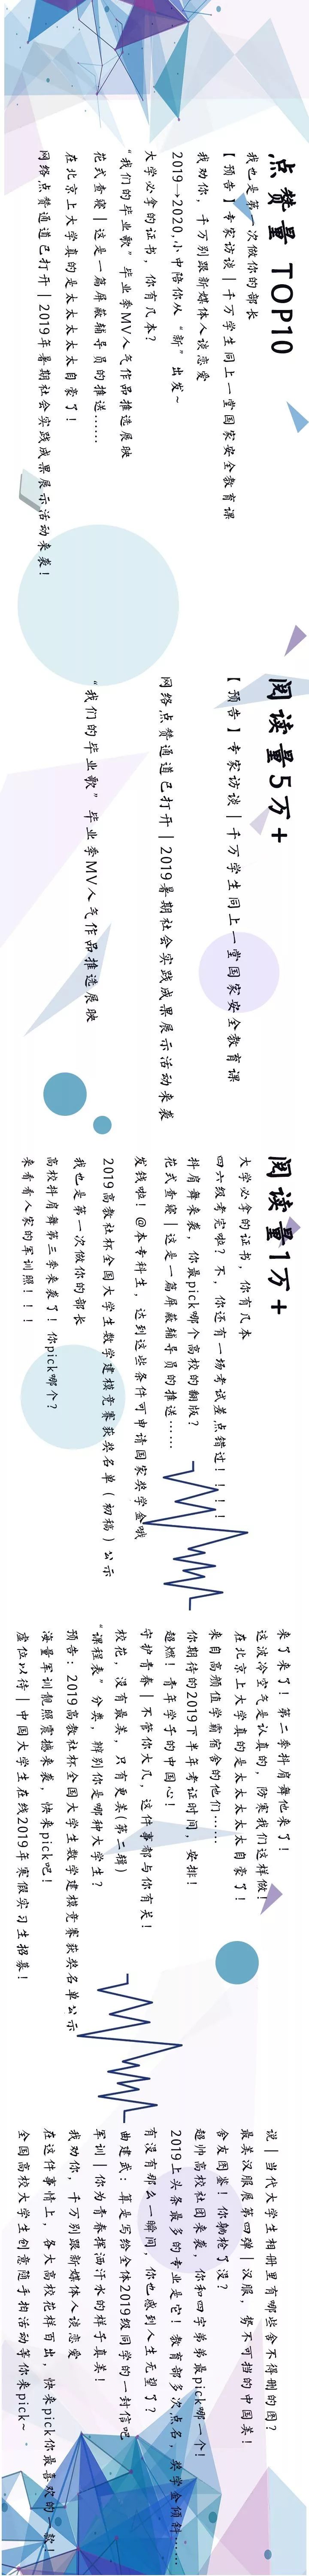 点赞量 TOP10
我也是第一次做你的部长
【预告】专家访谈|千万学生同上一堂国家安全教育课
我劝你，千万别跟新媒体人谈恋爱
2019→2020,小中陪你从“新”出发~
大学必拿的证书，你有几本？
“我们的毕业歌”毕业季MV人气作品推选展映
花式查寝|这是一篇屏蔽辅导员的推送……
在北京上大学真的是太太太太太自豪了！
网络点赞通道已打开|2019年暑期社会实践成果展示活动来袭！
阅读量5万+
【预告】专家访谈|千万学生同上一堂国家安全教育课
网络点赞通道已打开|2019暑期社会实践成果展示活动来袭
“我们的毕业歌”毕业季MV人气作品推选展映
阅读量1万+
大学必拿的证书，你有几本
四六级考完啦？不，你还有一场考试差点错过！！！！
抖肩舞来袭，你最pick哪个高校的翻版？
花式查寝|这是一篇屏蔽辅导员的推送……
发钱啦！@本专科生，达到这些条件可申请国家奖学金哦
2019高教社杯全国大学生数学建模竞赛获奖名单（初稿）公示
我也是第一次做你的部长
高校抖肩舞第三季来袭了！你pick哪个？
来看看人家的军训照！！！
来了来了！第二季抖肩舞他来了！
这波冷空气是认真的，防寒我们这样做！
在北京上大学真的是太太太太太自豪了！
来自高颜值学霸宿舍的他们……
你期待的2019下半年考证时间，安排！
超燃！青年学子的中国心！
守护青春|不管你大几，这件事都与你有关！
校花，没有最美，只有更美(第二辑)
“课程表”分类，辨别你是哪种大学生？
预告：2019高教社杯全国大学生数学建模竞赛获奖名单公示
海量军训靓照震撼来袭，快来pick吧！
虚位以待|中国大学生在线2019年寒假实习生招募！
说|当代大学生相册里有哪些舍不得删的图？
最美汉服展第四弹|汉服，势不可挡的中国美！
舍友图鉴！你躺枪了没？
超帅高校社团来袭，你和四字弟弟最pick哪一个！
2019上头条最多的专业是它！教育部多次点名，奖学金倾斜……
有没有那么一瞬间，你也感到人生无望了？
曲建武：算是写给全体2019级同学的一封信吧
军训|你为青春挥洒汗水的样子真美！
我劝你，千万别跟新媒体人谈恋爱
在这件事情上，各大高校花样百出，快来pick你最喜欢的一款！
全国高校大学生创意随手拍活动等你来pick~